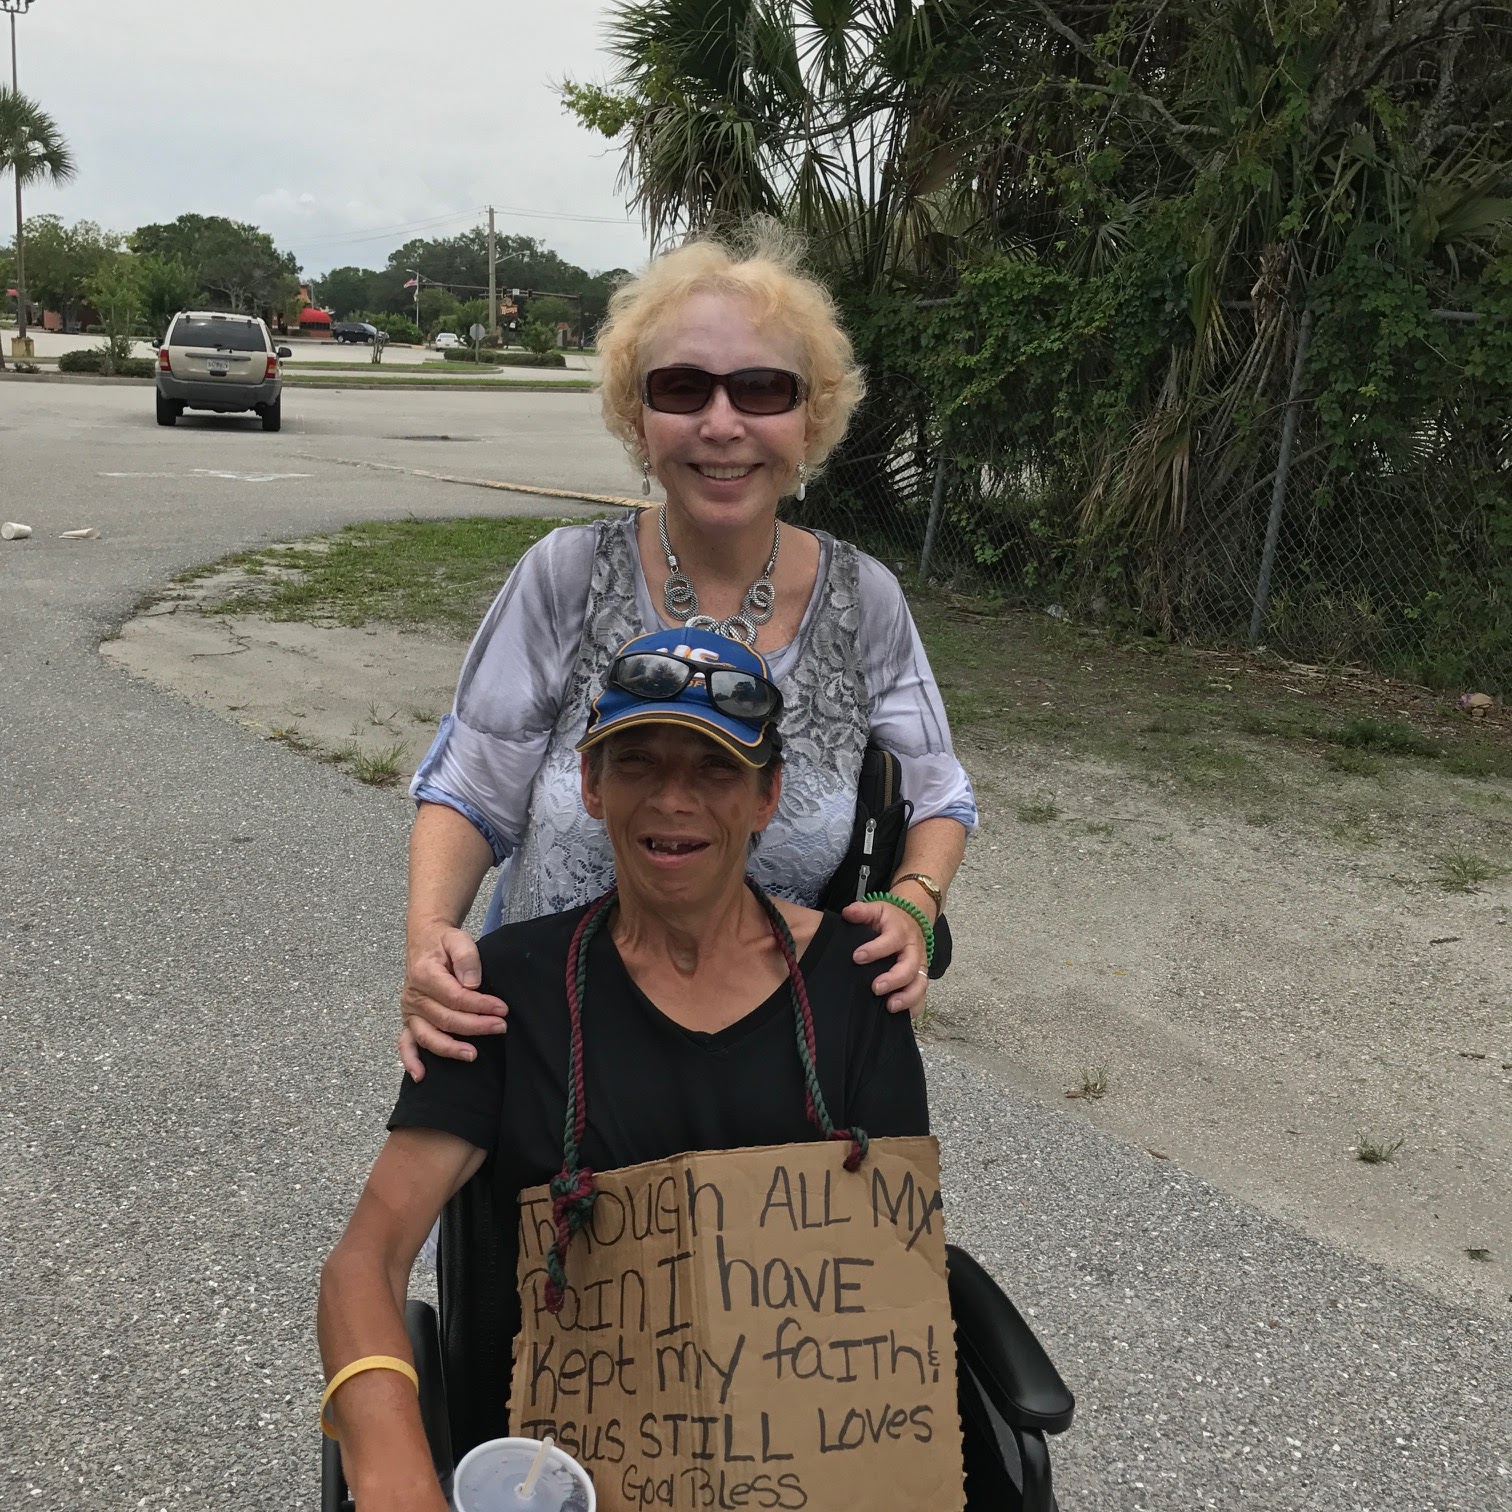 Through All My
Pain I have
Kept my faith! &
Jesus STILL Loves
God Bless